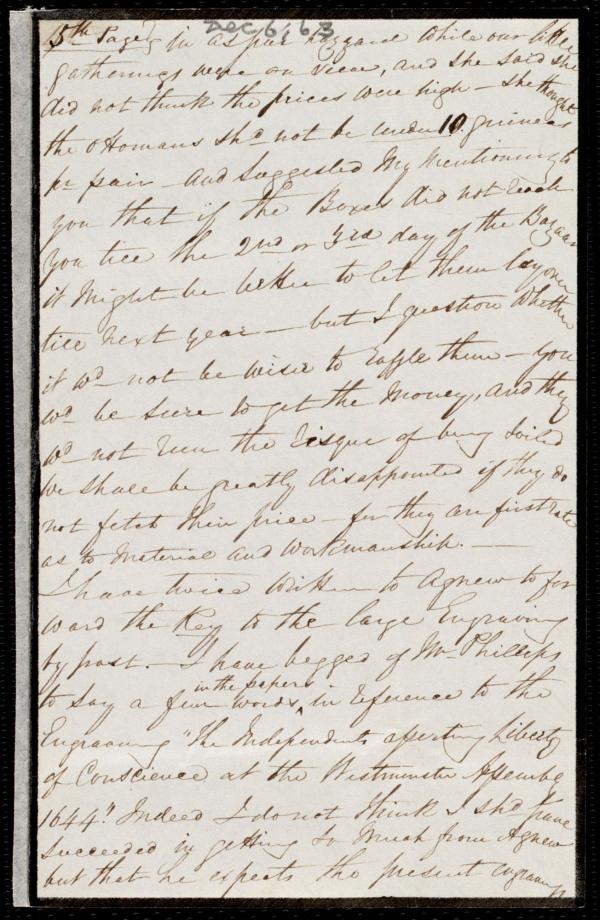 Dec 6, 63
5th Page, in as pur hazzard while our little
gatherings were on view, and she said she
did not think the prices were high – she thought
the Ottomans shd not be under 10. guineas
pr pair – and suggested my mentioning to
you that if the Boxes did not reach
you till the 2nd or 3rd day of the Bazaar
it might be better to let them lay over
till next year – but I question whether
it wd not be wiser to raffle them – you
wd be sure to get the money, and they
wd not run the risque of being soiled
we shall be greatly disappointed if they do
not fetch their price – for they are first rate
as to material and workmanship. –
I have twice written to Agnew to for
ward the Key to the large Engraving
by post. – I have begged of Mr Phillips
to say a few words in the papers, in reference to the
Engraving "The Independents asserting Liberty
of Conscience at the Westminster Assembly
1644". Indeed I do not think I shd have
succeeded in getting so much from Agnew
but that he expects the present engraving